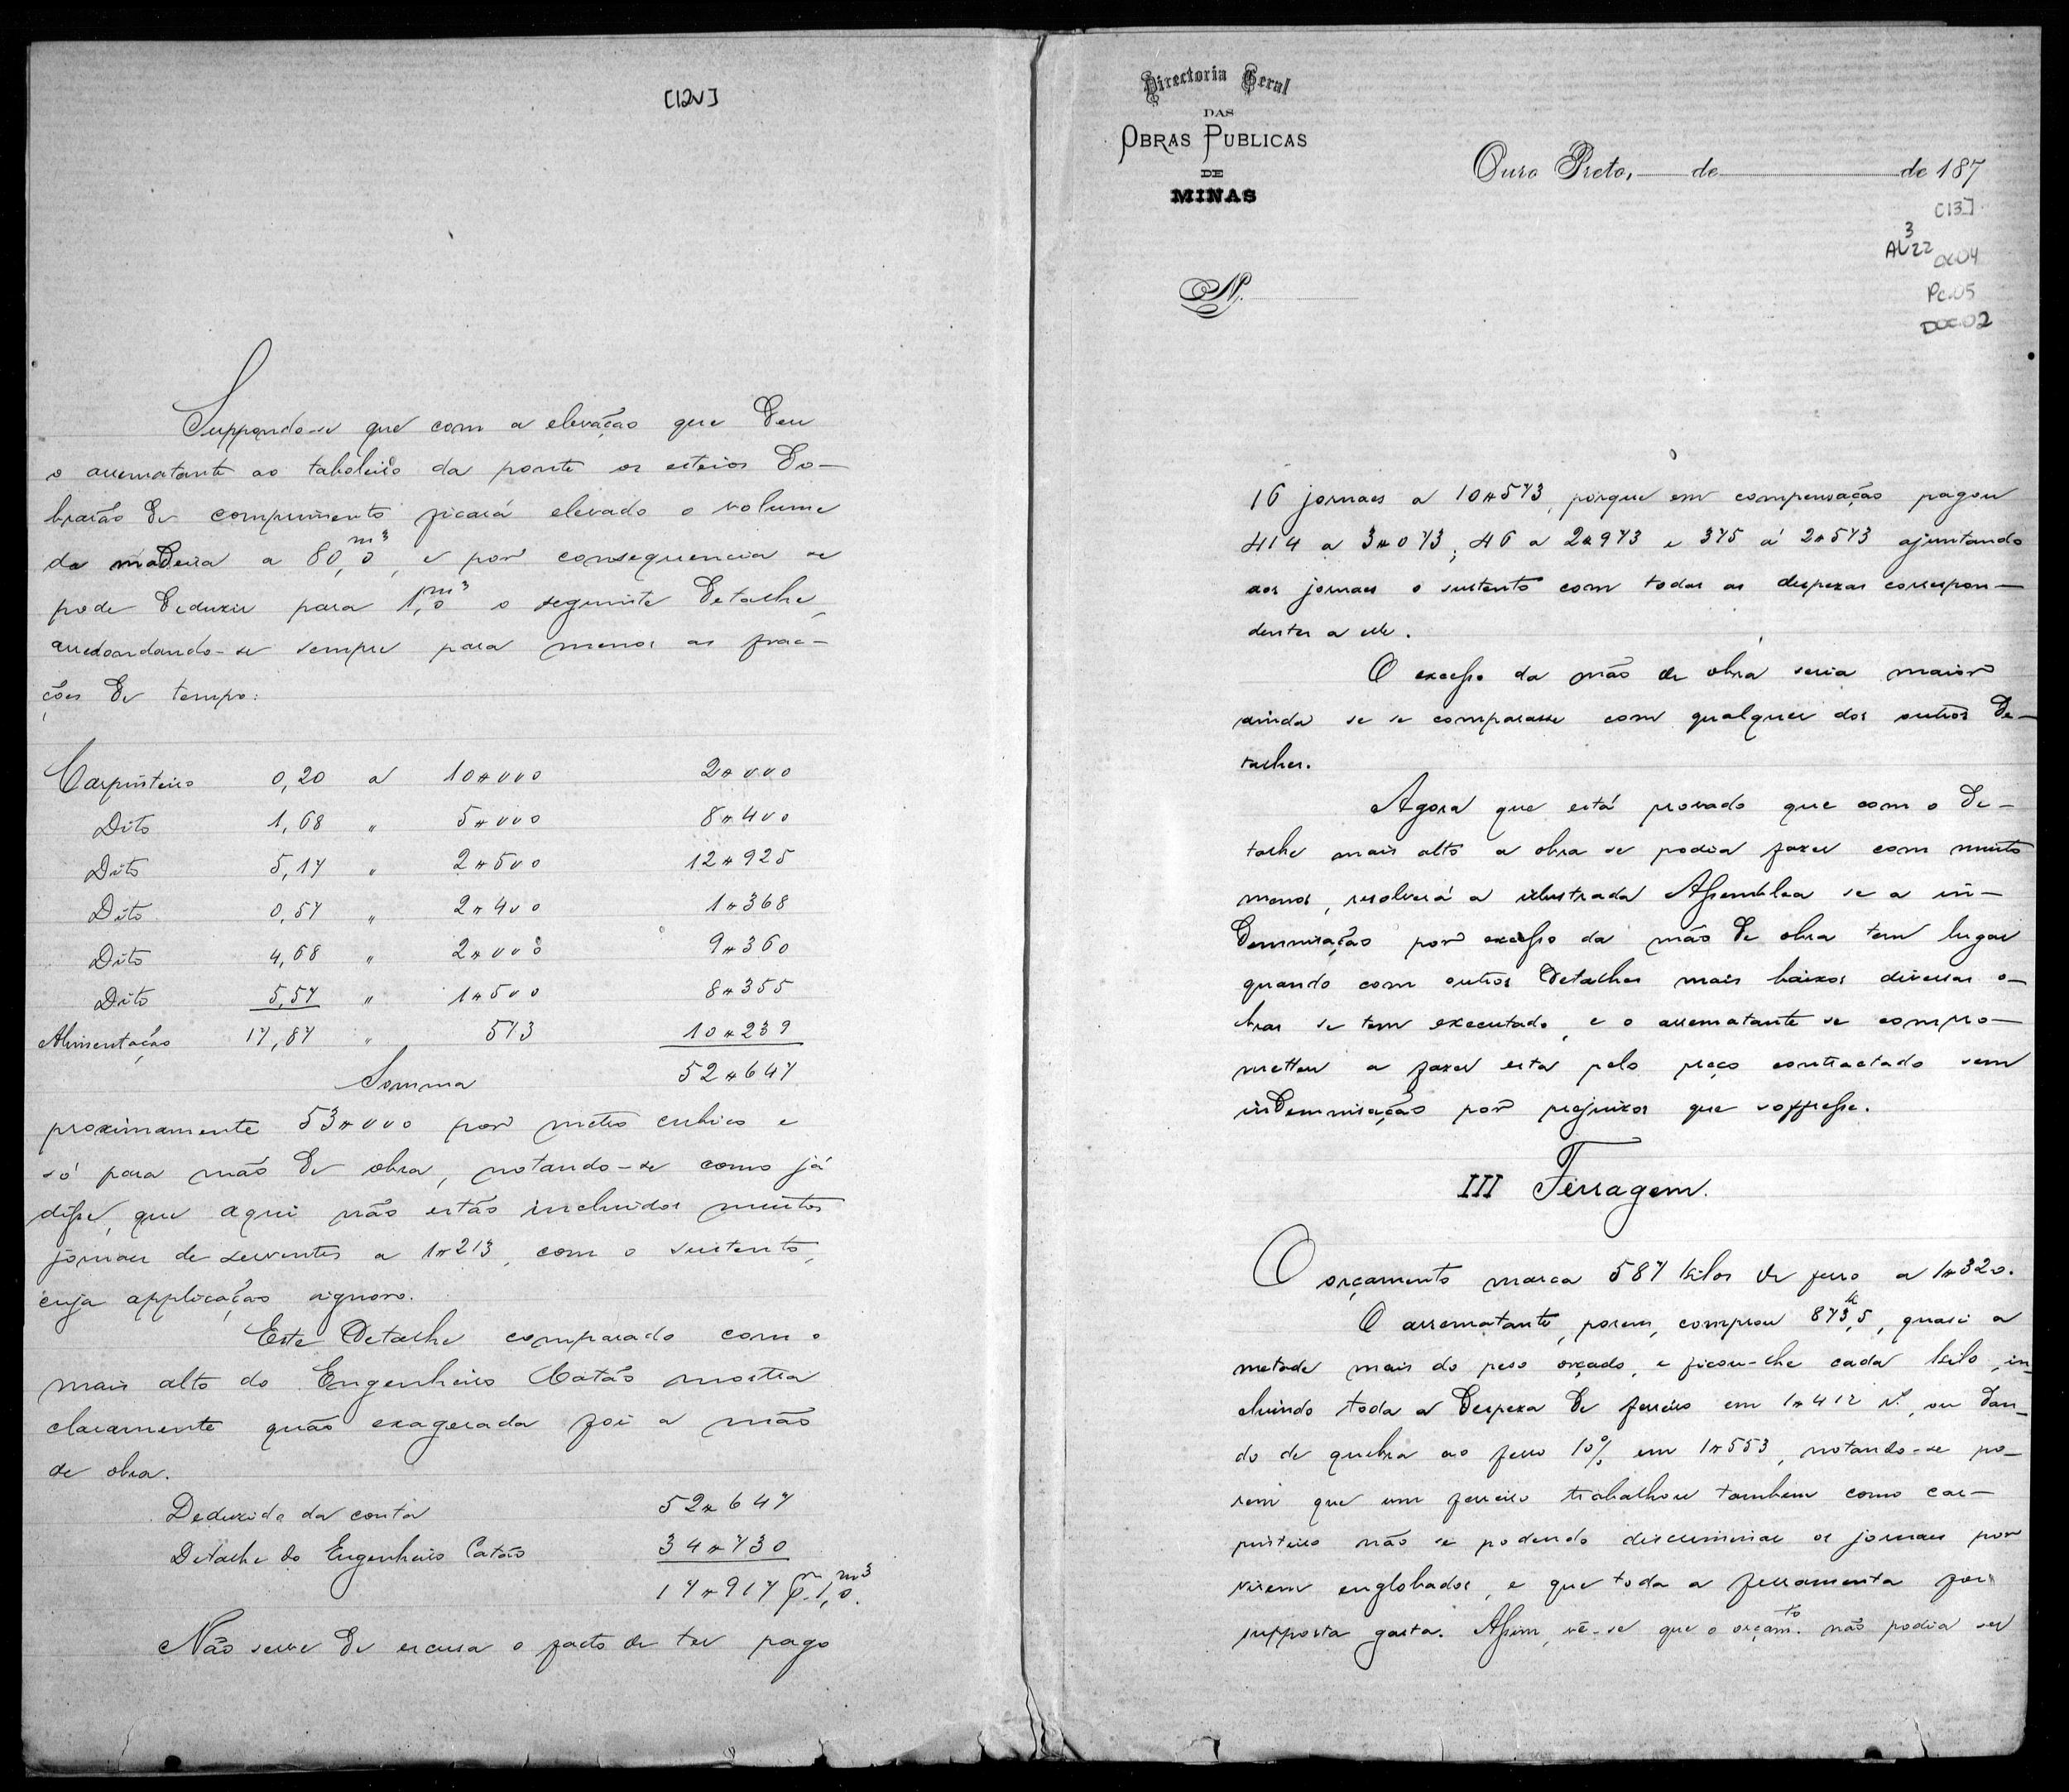 [12v]
Suppondo-se que com a elevação que deu
o arrematante ao taboleiro da ponte os esteios do-
brarão de comprimento ficará elevado o volume
da madeira a 80,0 m³, e por consequencia se
pode deduzir para 1,0 m³ o seguinte detalhe,
arredondando-se sempre para menos as frac-
ções de tempo:
Carpinteiro 0,20 a 10$000 2$000
Dito 1,68 " 5$000 8$400
Dito 5,17 " 2$500 12$925
Dito 0,57 " 2$400 1$368
Dito 4,68 " 2$000 9$360
Dito 5,57 " 1$500 8$355
Alimentação 17,87 " 573 10$239
Somma 52$647
proximamente 53$000 por metro cubico e
só para mão de obra, notando-se como já
disse, que aqui não estão incluidos muitos
jornaes de serventes a 1$213, com o sustento,
cuja applicação ignoro.
Este detalhe comparado com o
mais alto do Engenheiro Catão mostra
claramente quão exagerada foi a mão
de obra.
Deduzido da conta 52$647
Detalhe do Engenheiro Catão 34$730
17$917 p. 1,0 m³.
Não serve de escusa o facto de ter pago
Directoria Geral
DAS
OBRAS PUBLICAS
DE
MINAS
Ouro Preto, de de 187
[13]
AL 3 22 cx04
Pc.05
DOC.02
N.
16 jornaes a 10$573, porque em compensação pagou
414 a 3$073; 46 a 2$973 e 375 á 2$573 ajuntando
aos jornaes o sustento com todas as despezas correspon-
dentes a elle.
O excesso da mão de obra seria maior
ainda se se comparasse com qualquer dos outros de-
talhes.
Agora que está provado que com o de-
talhe mais alto a obra se podia fazer com muito
menos, resolverá a illustrada Assemblea se a in-
demnisação por excesso da mão de obra tem lugar
quando com outros detalhes mais baixos diversas o-
bras se tem executado, e o arrematante se compro-
metteu a fazer esta pelo preço contractado sem
indemnisação por prejuizos que soffresse.
III Ferragem.
O orçamento marca 587 kilos de ferro a 1$320.
O arrematante, porem, comprou 873,5 k, quasi a
metade mais do peso orçado, e ficou-lhe cada kilo, in-
cluindo toda a despeza de ferreiro em 1$412 rs., ou dan-
do de quebra ao ferro 10% em 1$553, notando-se po-
rem que um ferreiro trabalhou tambem como car-
pinteiro não se podendo discriminar os jornaes por
virem englobados, e que toda a ferramenta foi
supposta gasta. Assim, vê-se que o orçam.to não podia ser